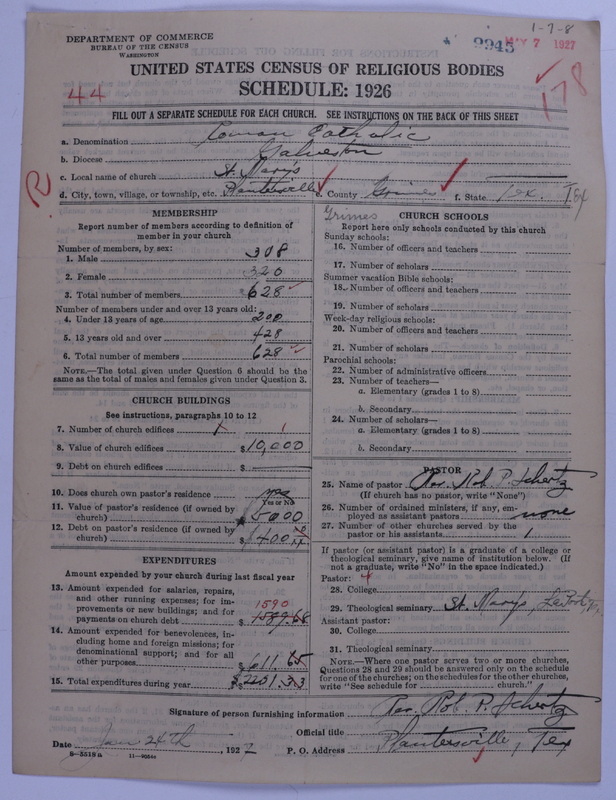 1-7-8
DEPARTMENT OF COMMERCE
BUREAU OF THE CENSUS
WASHINGTON
9945 MAY 7 1927
UNITED STATES CENSUS OF RELIGIOUS BODIES
44
SCHEDULE: 1926
178
FILL OUT A SEPARATE SCHEDULE FOR EACH CHURCH. SEE INSTRUCTIONS ON THE BACK OF THIS SHEET
a. Denomination Roman Catholic
b. Diocese Galveston
c. Local name of church St. Mary's
R
d. City, town, village, or township, etc. Plantersville e. County Grimes f. State Tex. Tex
MEMBERSHIP
Report number of members according to definition of
member in your church
Number of members, by sex:
1. Male 308
2. Female 320
3. Total number of members 628
Number of members under and over 13 years old:
4. Under 13 years of age 200
5. 13 years old and over 428
6. Total number of members 628
NOTE.—The total given under Question 6 should be
the same as the total of males and females given under Question 3.
CHURCH BUILDINGS
See instructions, paragraphs 10 to 12
7. Number of church edifices 1 1
8. Value of church edifices $10,000
9. Debt on church edifices $
10. Does church own pastor's residence yes
Yes or No
11. Value of pastor's residence (if owned by
church) $5000
12. Debt on pastor's residence (if owned by
church) $400
EXPENDITURES
Amount expended by your church during last fiscal year
13. Amount expended for salaries, repairs,
and other running expenses; for im-
provements or new buildings; and for
payments on church debt $ 1590 1589.68
14. Amount expended for benevolences, in-
cluding home and foreign missions; for
denominational support; and for all
other purposes $611.65
15. Total expenditures during year $2201.33
Grimes
CHURCH SCHOOLS
Report here only schools conducted by this church
Sunday schools:
16. Number of officers and teachers
17. Number of scholars
Summer vacation Bible schools:
18. Number of officers and teachers
19. Number of scholars
Week-day religious schools:
20. Number of officers and teachers
21. Number of scholars
Parochial schools:
22. Number of administrative officers
23. Number of teachers—
a. Elementary (grades 1 to 8)
b. Secondary
24. Number of scholars—
a. Elementary (grades 1 to 8)
b. Secondary
PASTOR
25. Name of pastor Rev. Rob. P. Schertz
(If church has no pastor, write "None")
26. Number of ordained ministers, if any, em-
ployed as assistant pastors none
27. Number of other churches served by the
pastor or his assistants 1
If pastor (or assistant pastor) is a graduate of a college or
theological seminary, give name of institution below. (If
not a graduate, write "No" in the space indicated.)
Pastor: 4
28. College
29. Theological seminary St. Mary's, LaPorte, Tex
Assistant pastor:
30. College
31. Theological seminary
NOTE.—Where one pastor serves two or more churches,
Questions 28 and 29 should be answered only on the schedule
for one of the churches; on the schedules for the other churches,
write "See schedule for church."
Signature of person furnishing information Rev. Rob. P. Schertz
Official title
Date Jan 24th, 1927 P. O. Address Plantersville, Tex
8-5518a 11-9054a